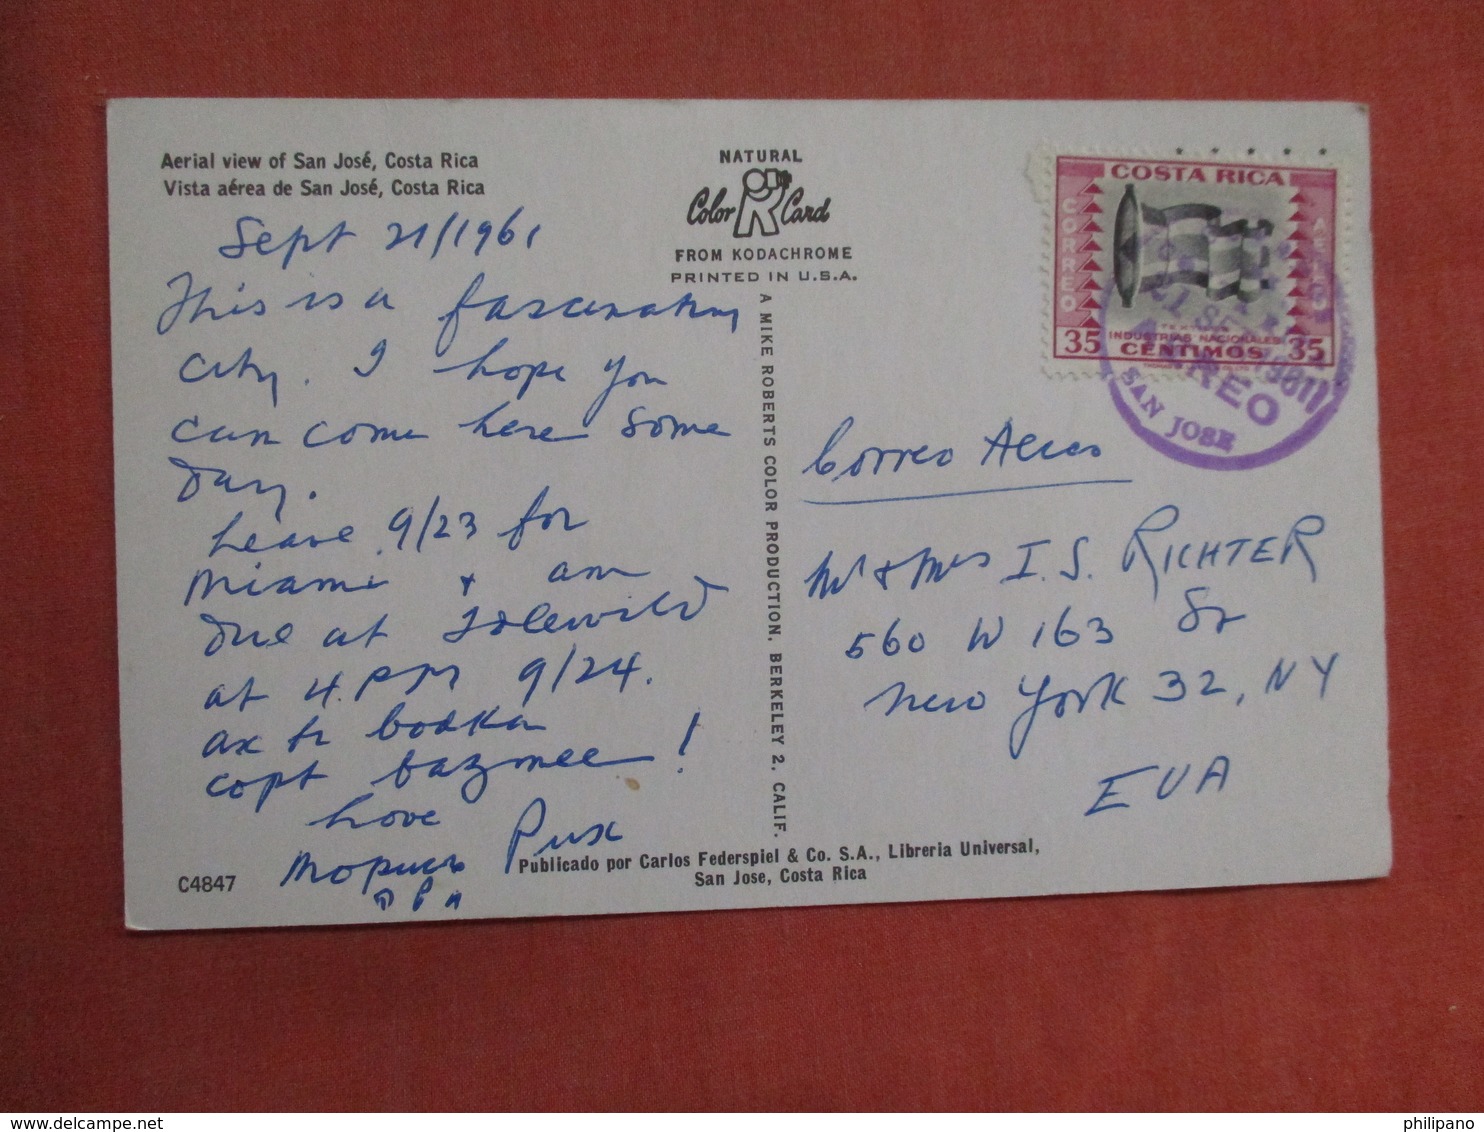 Aerial view of San José, Costa Rica
Vista aérea de San José, Costa Rica
Sept 21/1961
This is a fascinating
city. I hope you
can come here some
day.
Leave 9/23 for
Miami & am
due at Idlewild
at 4 PM 9/24.
Love
C4847
NATURAL
Color Card
FROM KODACHROME
PRINTED IN U.S.A.
A MIKE ROBERTS COLOR PRODUCTION, BERKELEY 2, CALIF.
Publicado por Carlos Federspiel & Co. S.A., Libreria Universal,
San Jose, Costa Rica
COSTA RICA
CORREO
AEREO
TEXTILES
INDUSTRIAS NACIONALES
35 CENTIMOS 35
SAN JOSE
Correo Aereo
Mr & Mrs I. S. RICHTER
560 W 163 St
New York 32, NY
EUA
philipano
delcampe.net